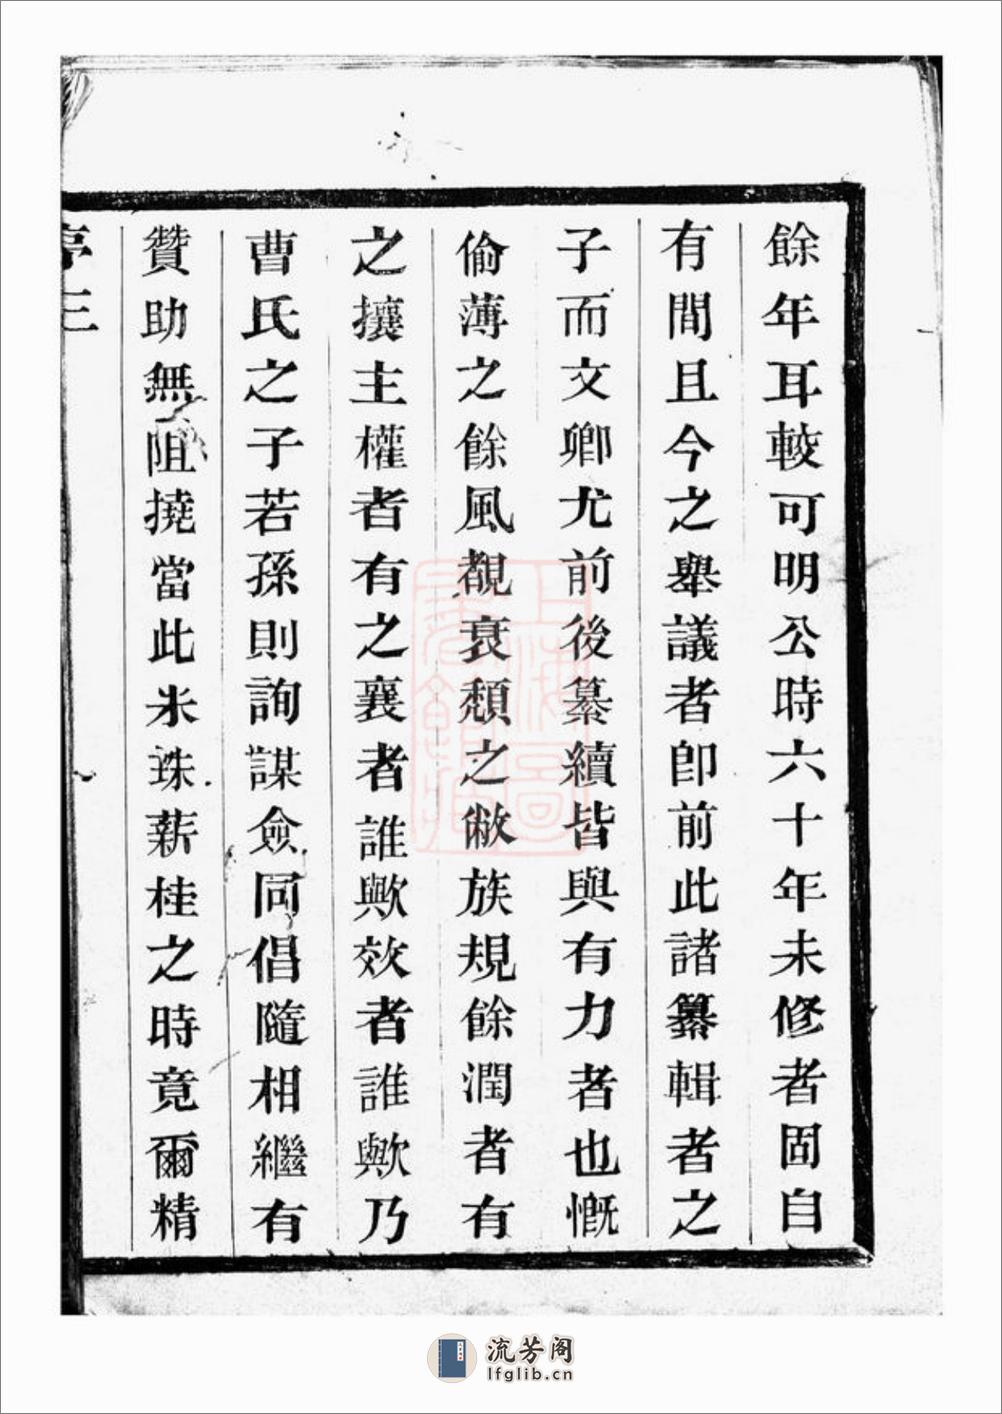 餘年耳較可明公時六十年未修者固自
有間且今之舉議者卽前此諸纂輯者之
子而文卿尤前後纂續皆與有力者也慨
偷薄之餘風覩衰頽之敝族規餘潤者有
之攘主權者有之襄者誰歟效者誰歟乃
曹氏之子若孫則詢謀僉同倡隨相繼有
贊助無阻撓當此米珠薪桂之時竟爾精
序三
上海圖
流芳阁
lfglib.cn